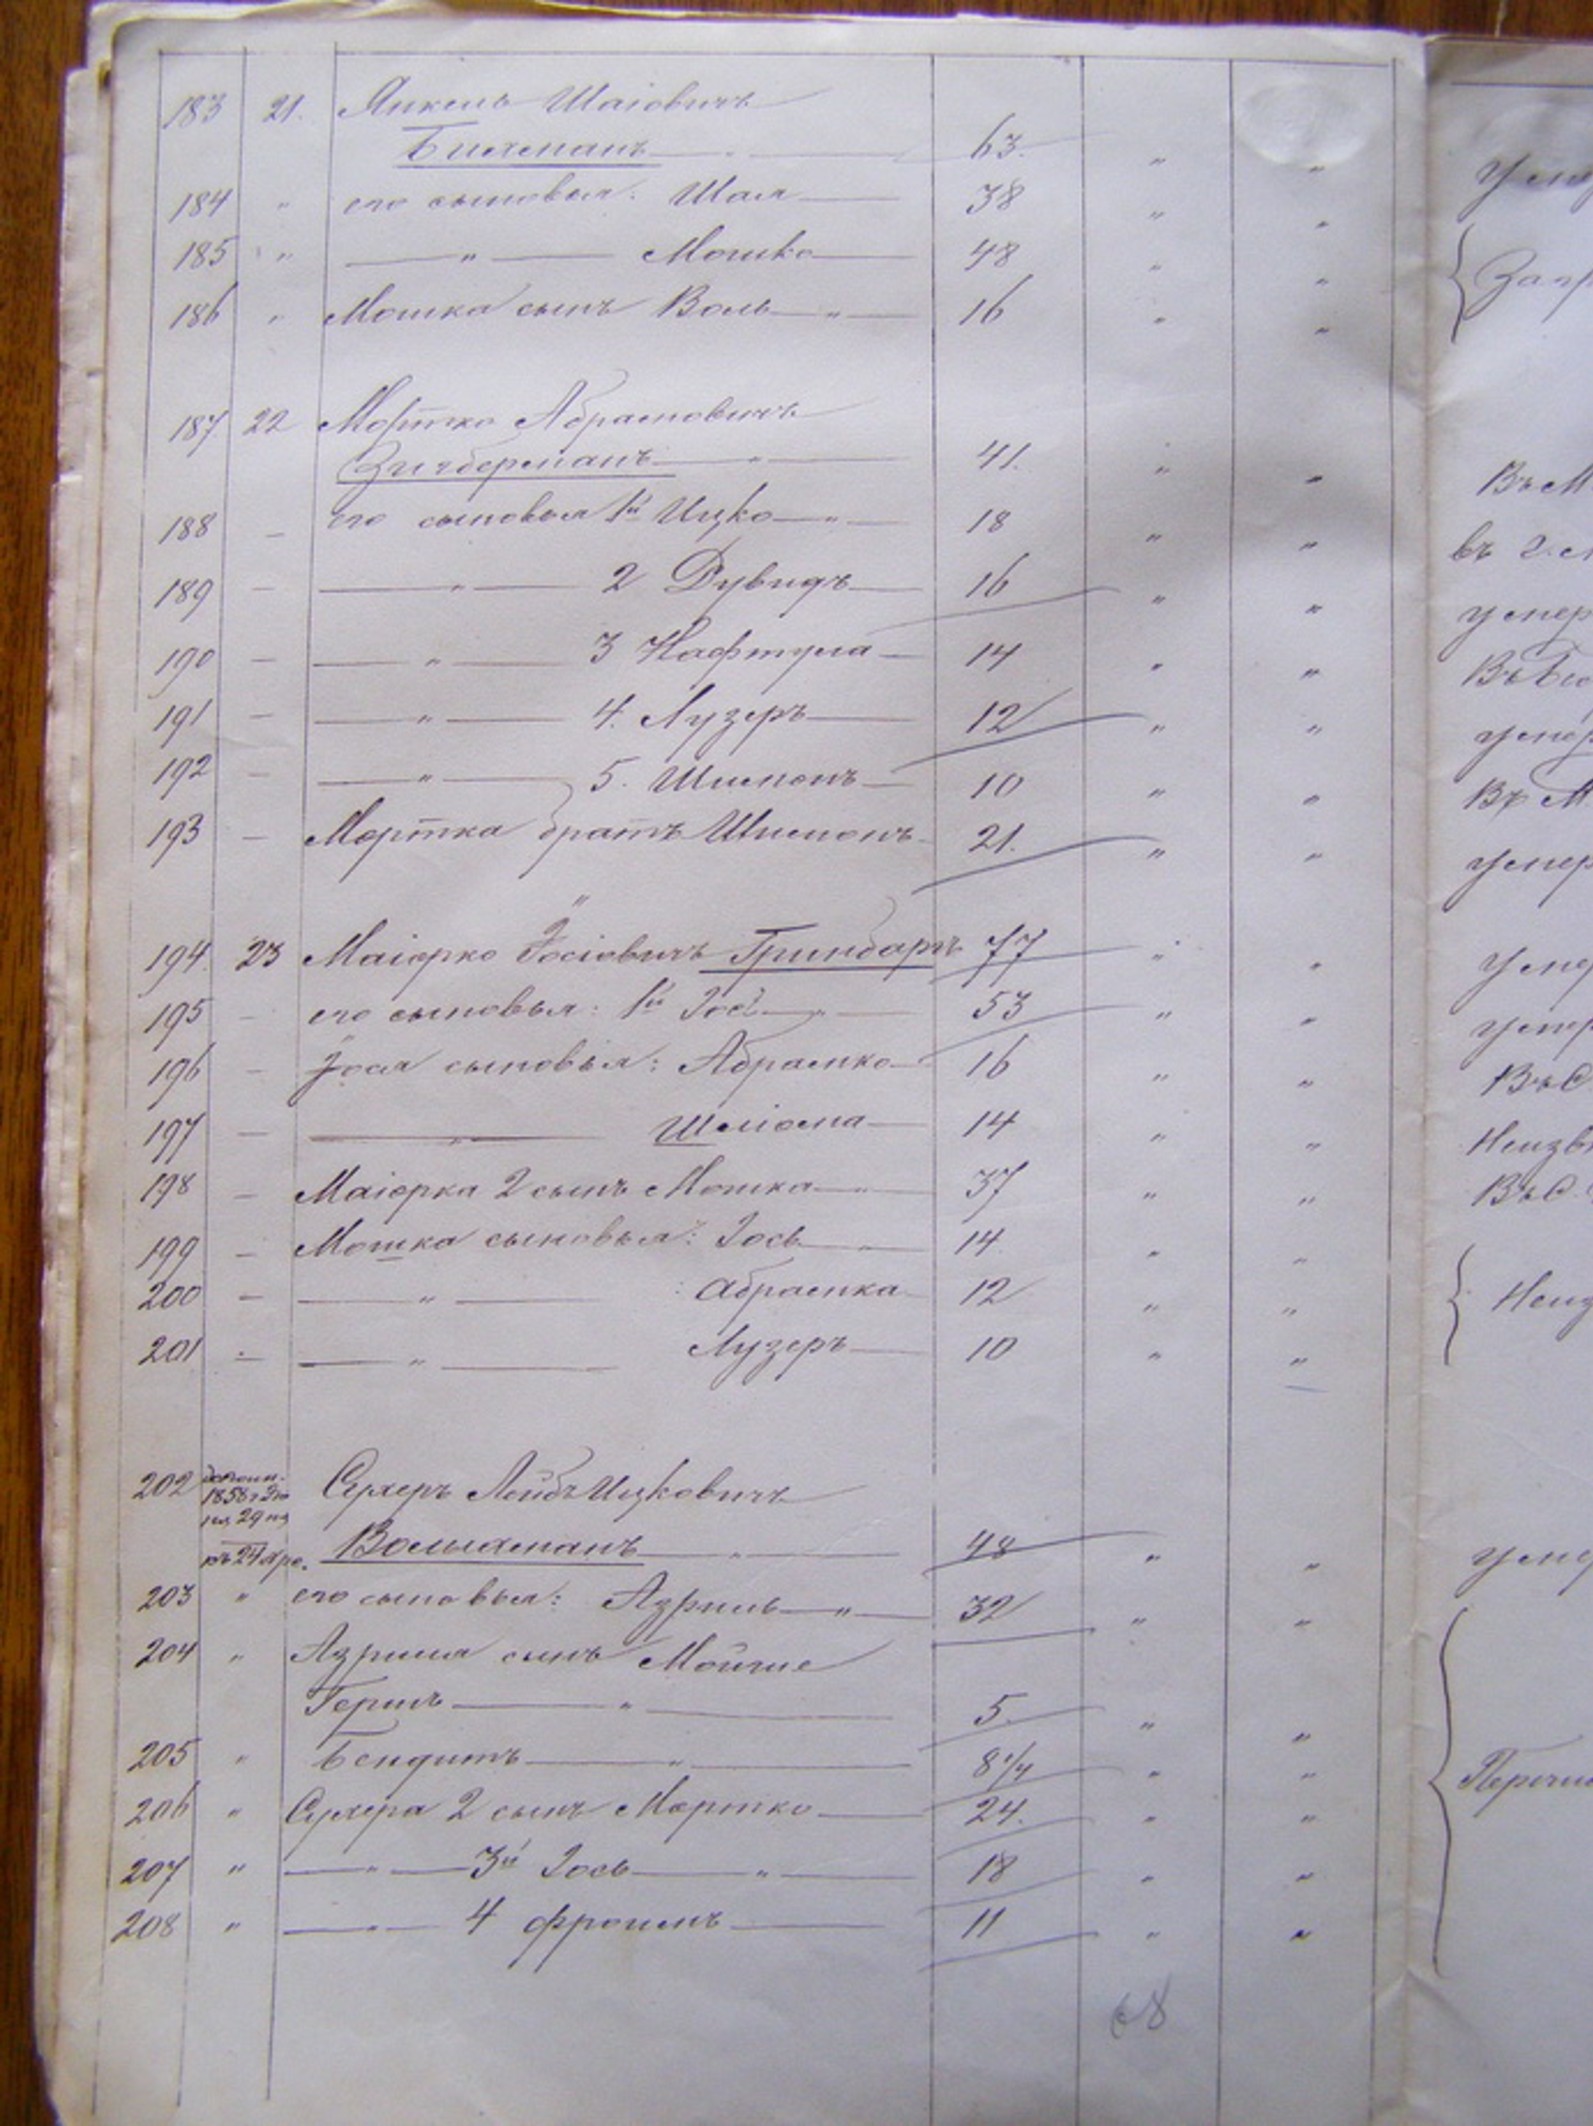 183 21. Янкель Шаіовичъ
Билеманъ 63. " "
184 " его сыновья: Шая 38 " "
185 " " Мошко 48 " "
186 " Мошка сынъ Воль " 16 " "
187 22 Мортко Абрамовичъ
Зильберманъ " 41. " "
188 его сыновья 1й Ицко " 18 " "
189 " 2 Дувидъ 16 " "
190 " 3 Нафтула 14 " "
191 " 4. Лузеръ 12 " "
192 " 5. Шимонъ 10 " "
193 Мортка братъ Шимонъ 21. " "
194 23 Маіорко Іосіовичъ Гринбаръ 77 " "
195 его сыновья: 1й Іось " 53 " "
196 Іося сыновья: Абрамко 16 " "
197 " Шліома 14 " "
198 Маіорка 2 сынъ Мошка 37 " "
199 Мошка сыновья: Іось 14 " "
200 " Абрамка 12 " "
201 " Лузеръ 10 " "
202 1858 29 Сухеръ Лейбъ Ицковичъ
24 Вольхманъ " 48 " "
203 " его сыновья: Азриль " 32 " "
204 " Азриля сынъ Мойше
Гершъ " 5. " "
205 " Бендитъ " 8 1/4 " "
206 " Сухера 2 сынъ Мортко 24. " "
207 " " 3й Іось " 18 " "
208 " " 4 Фроимъ 11 " "
68